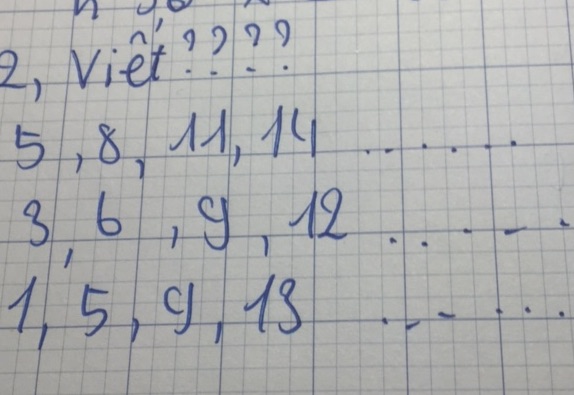 2, Viết ????
5, 8, 11, 14 ......
3, 6, 9, 12 ......
1, 5, 9, 13 ......